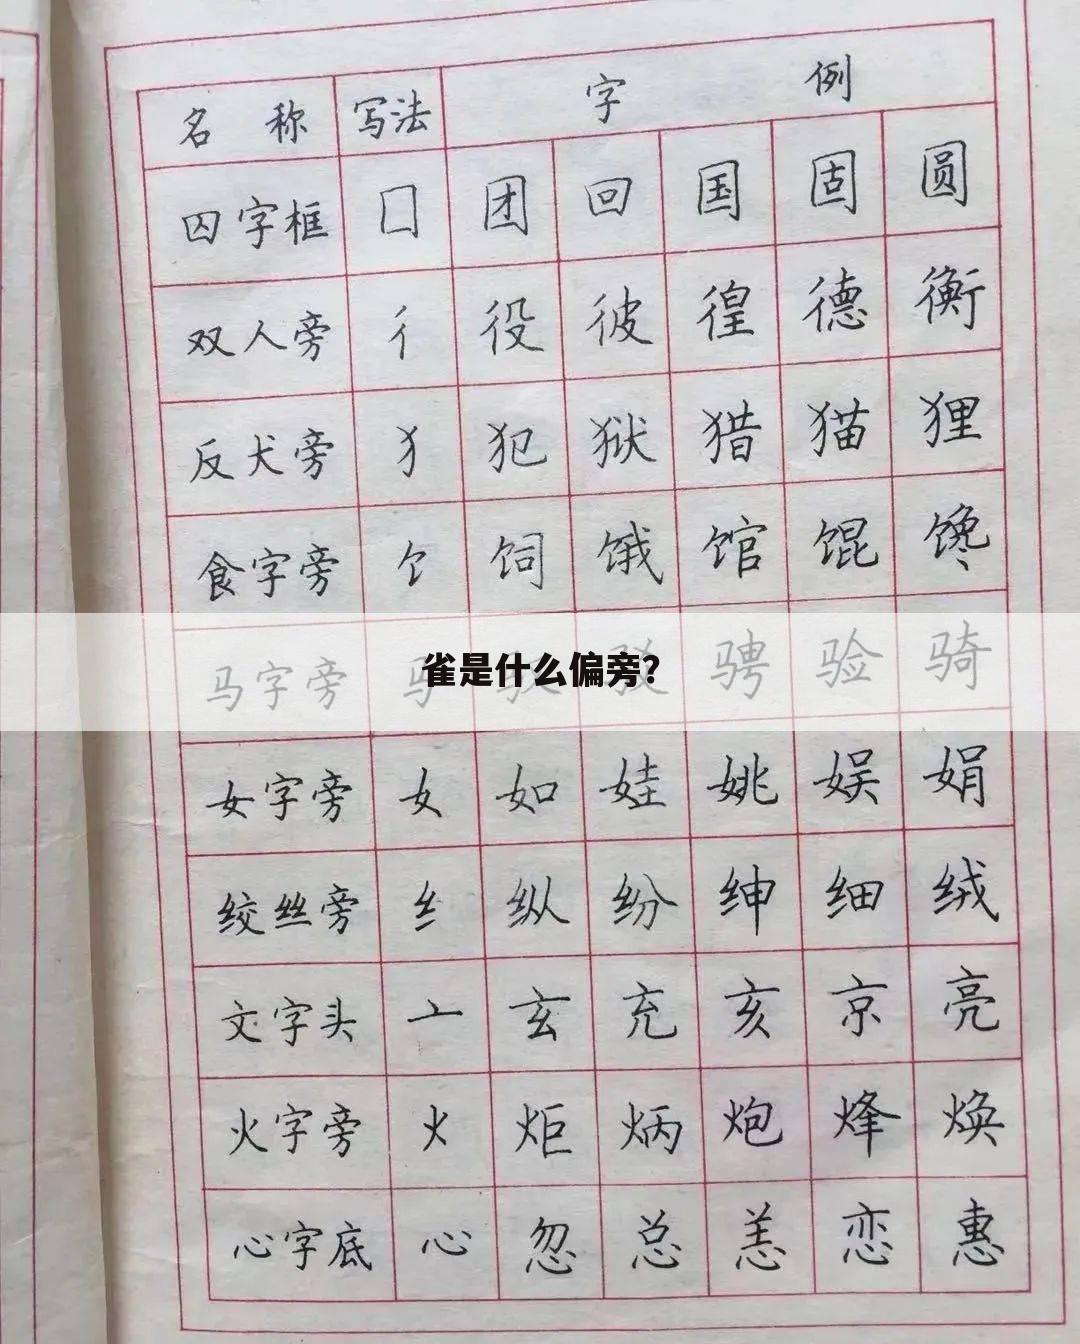 名 称 写法 字 例
囚字框 囗 团 回 国 固 圆
双人旁 彳 役 彼 徨 德 衡
反犬旁 犭 犯 狱 猎 猫 狸
食字旁 饣 饲 饿 馆 馄 馋
马字旁 马 骋 验 骑
雀是什么偏旁?
女字旁 女 如 娃 姚 娱 娟
绞丝旁 纟 纵 纷 绅 细 绒
文字头 亠 玄 充 亥 京 亮
火字旁 火 炬 炳 炮 烽 焕
心字底 心 忽 总 恙 恋 惠